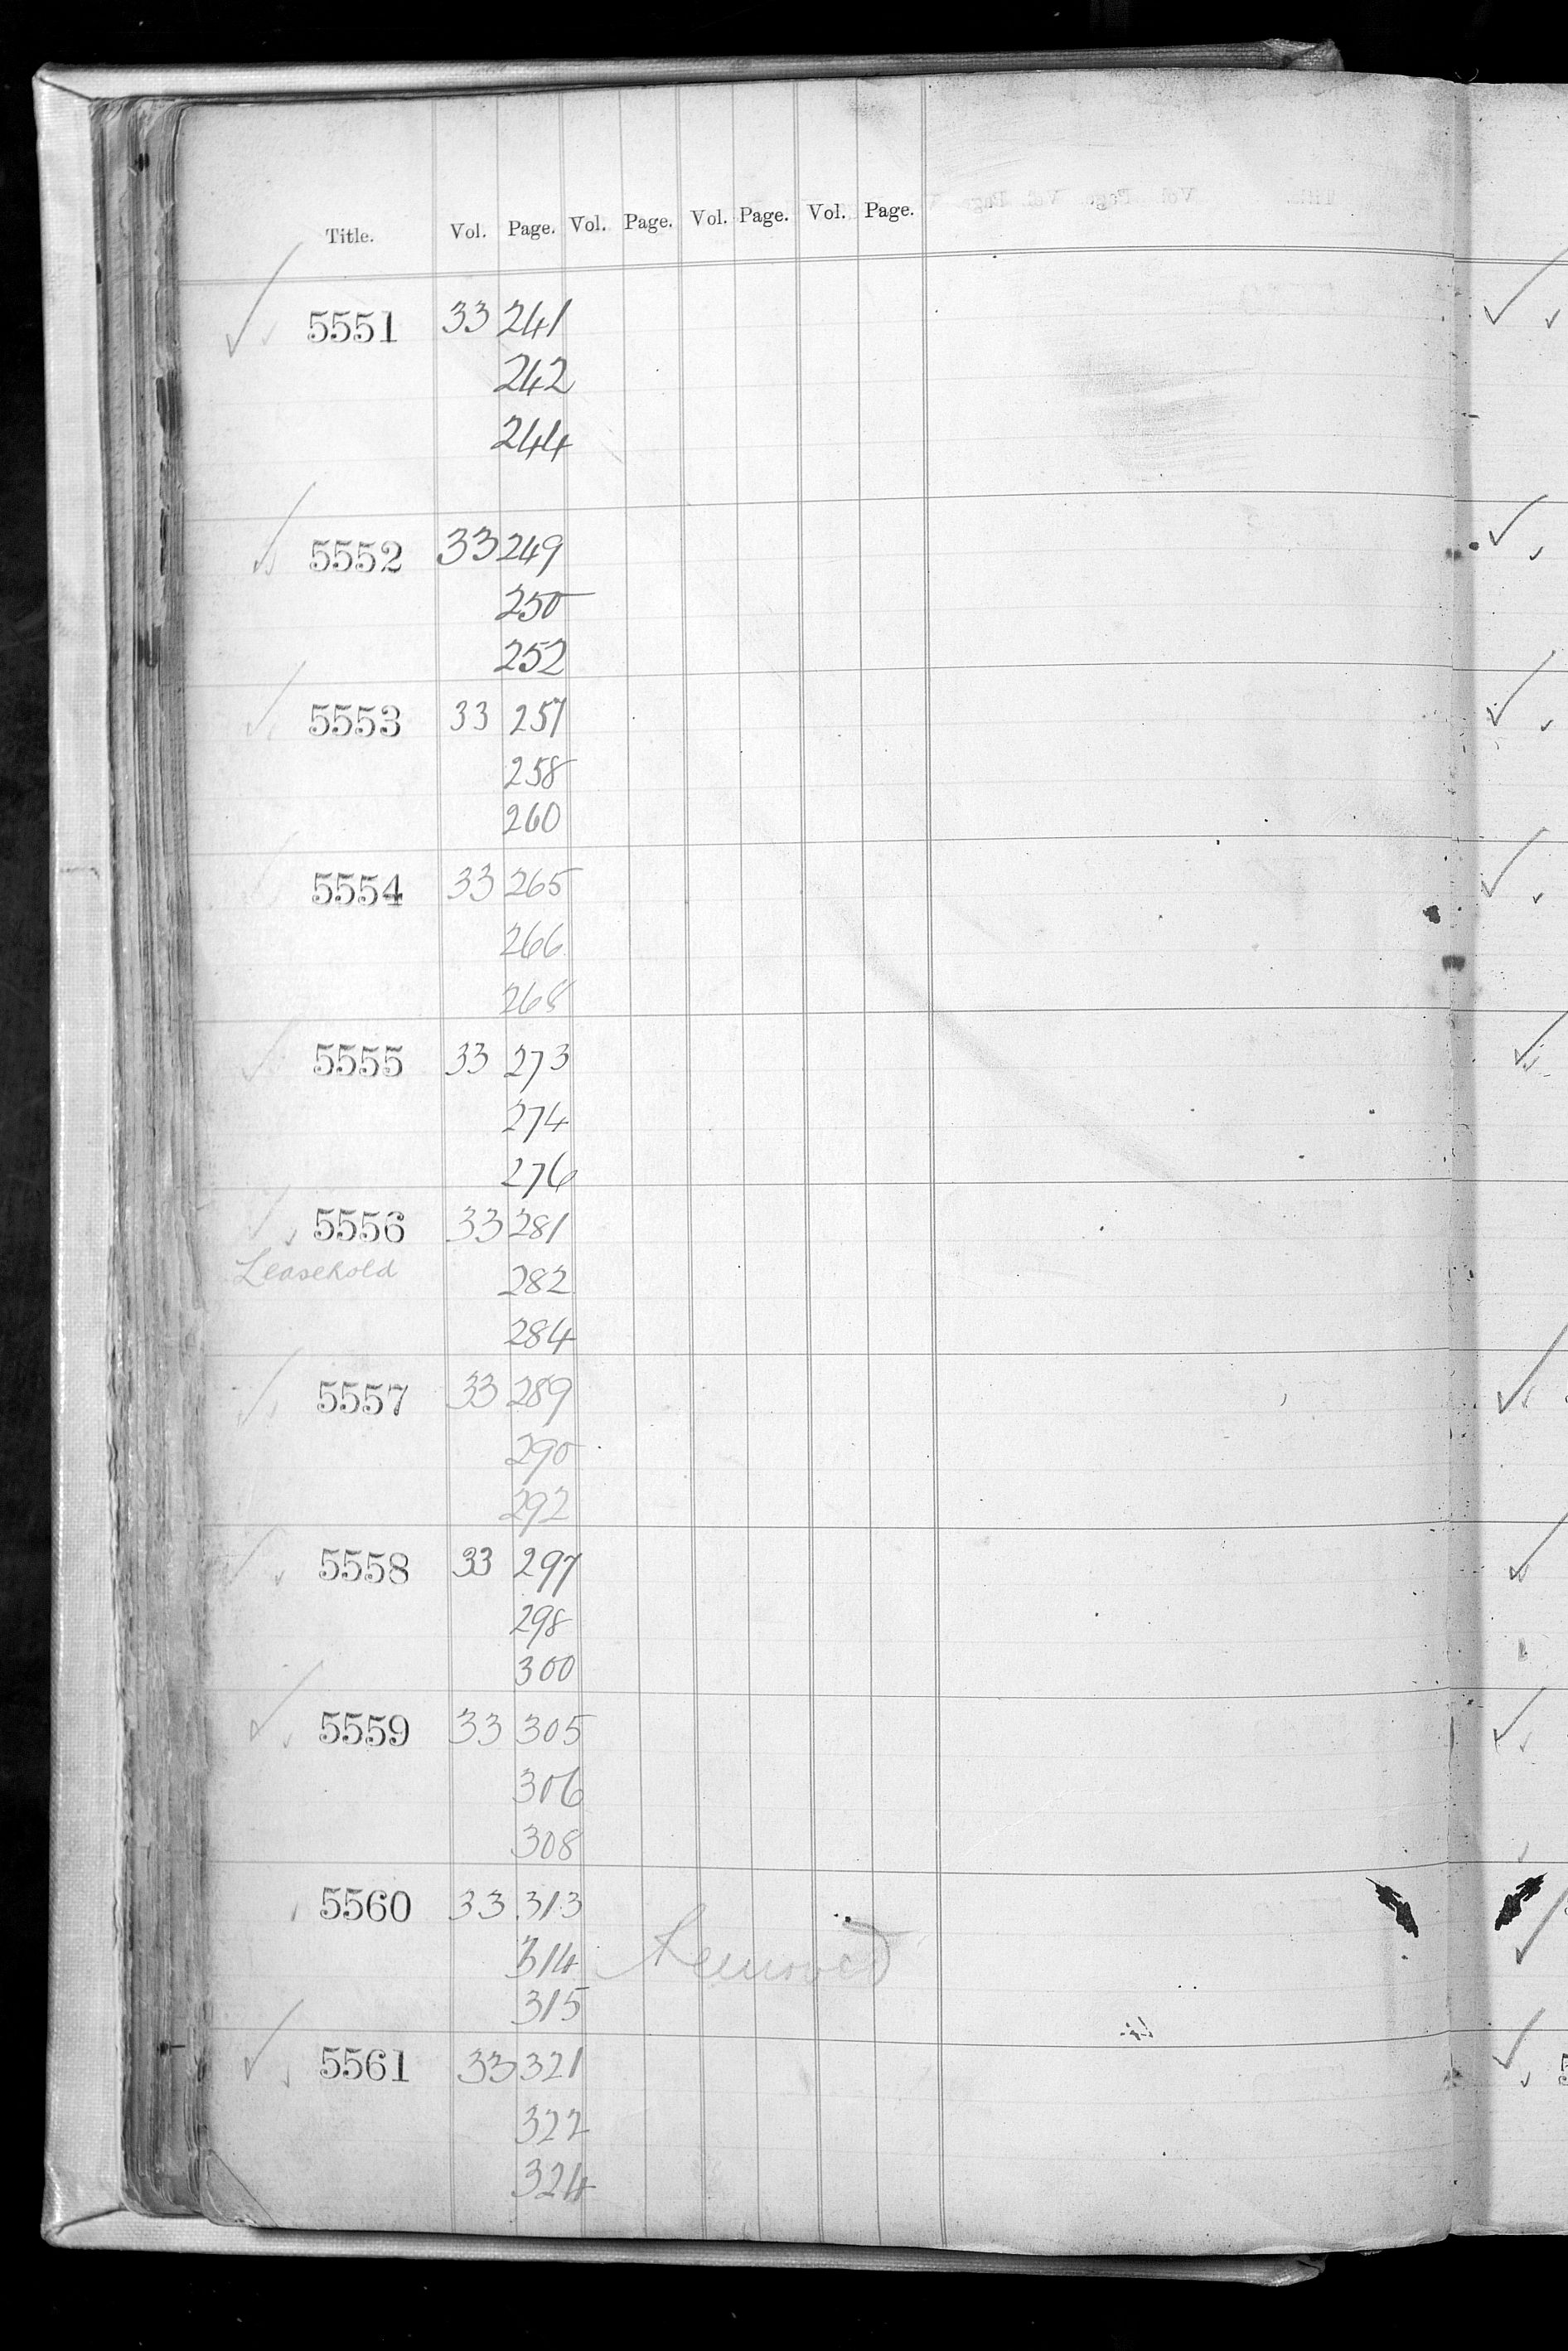 Title. Vol. Page. Vol. Page. Vol. Page. Vol. Page.
5551 33 241
242
244
5552 33 249
250
252
5553 33 257
258
260
5554 33 265
266
268
5555 33 273
274
276
5556 33 281
Leasehold 282
284
5557 33 289
290
292
5558 33 297
298
300
5559 33 305
306
308
5560 33 313
314 Removed
315
5561 33 321
322
324